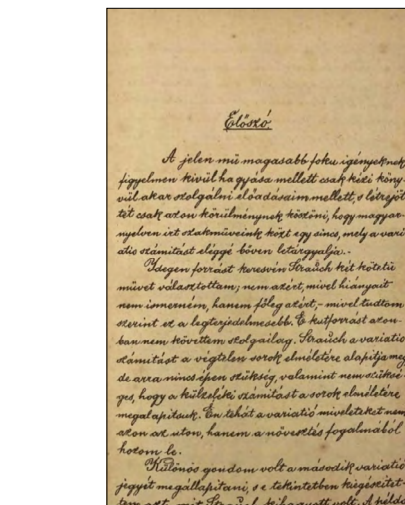 Előszó.
A jelen mű magasabb foku igényeknek
figyelmen kivül hagyása mellett csak kézi köny-
vül akar szolgálni előadásaim mellett, s létrejöt-
tét csak azon körülménynek köszöni, hogy magyar
nyelven irt szakműveink közt egy sincs, mely a vari-
átio számitást eléggé bőven letárgyalja.-
Idegen forrást keresvén Strauch két kötetű
művet választottam; nem azért, mivel hiányait
nem ismerném, hanem főleg azért,- mivel tudtom
szerint ez a legterjedelmesebb. E kutforrást azon-
ban nem követtem szolgailag. Strauch a variatio
számitást a végtelen sorok elméletére alapitja meg
de arra nincs épen szükség, valamint nem szüksé-
ges, hogy a külzeléki számitást a sorok elméletére
megalapitsuk. Én tehát a variatió műveleteket nem
azon az uton, hanem a növesztés fogalmából
hozom le.
Különös gondom volt a második variatió
jegyét megállapitani, s e tekintetben kiegészitet-
tem azt, mit Strauch kihagyott volt. A példá